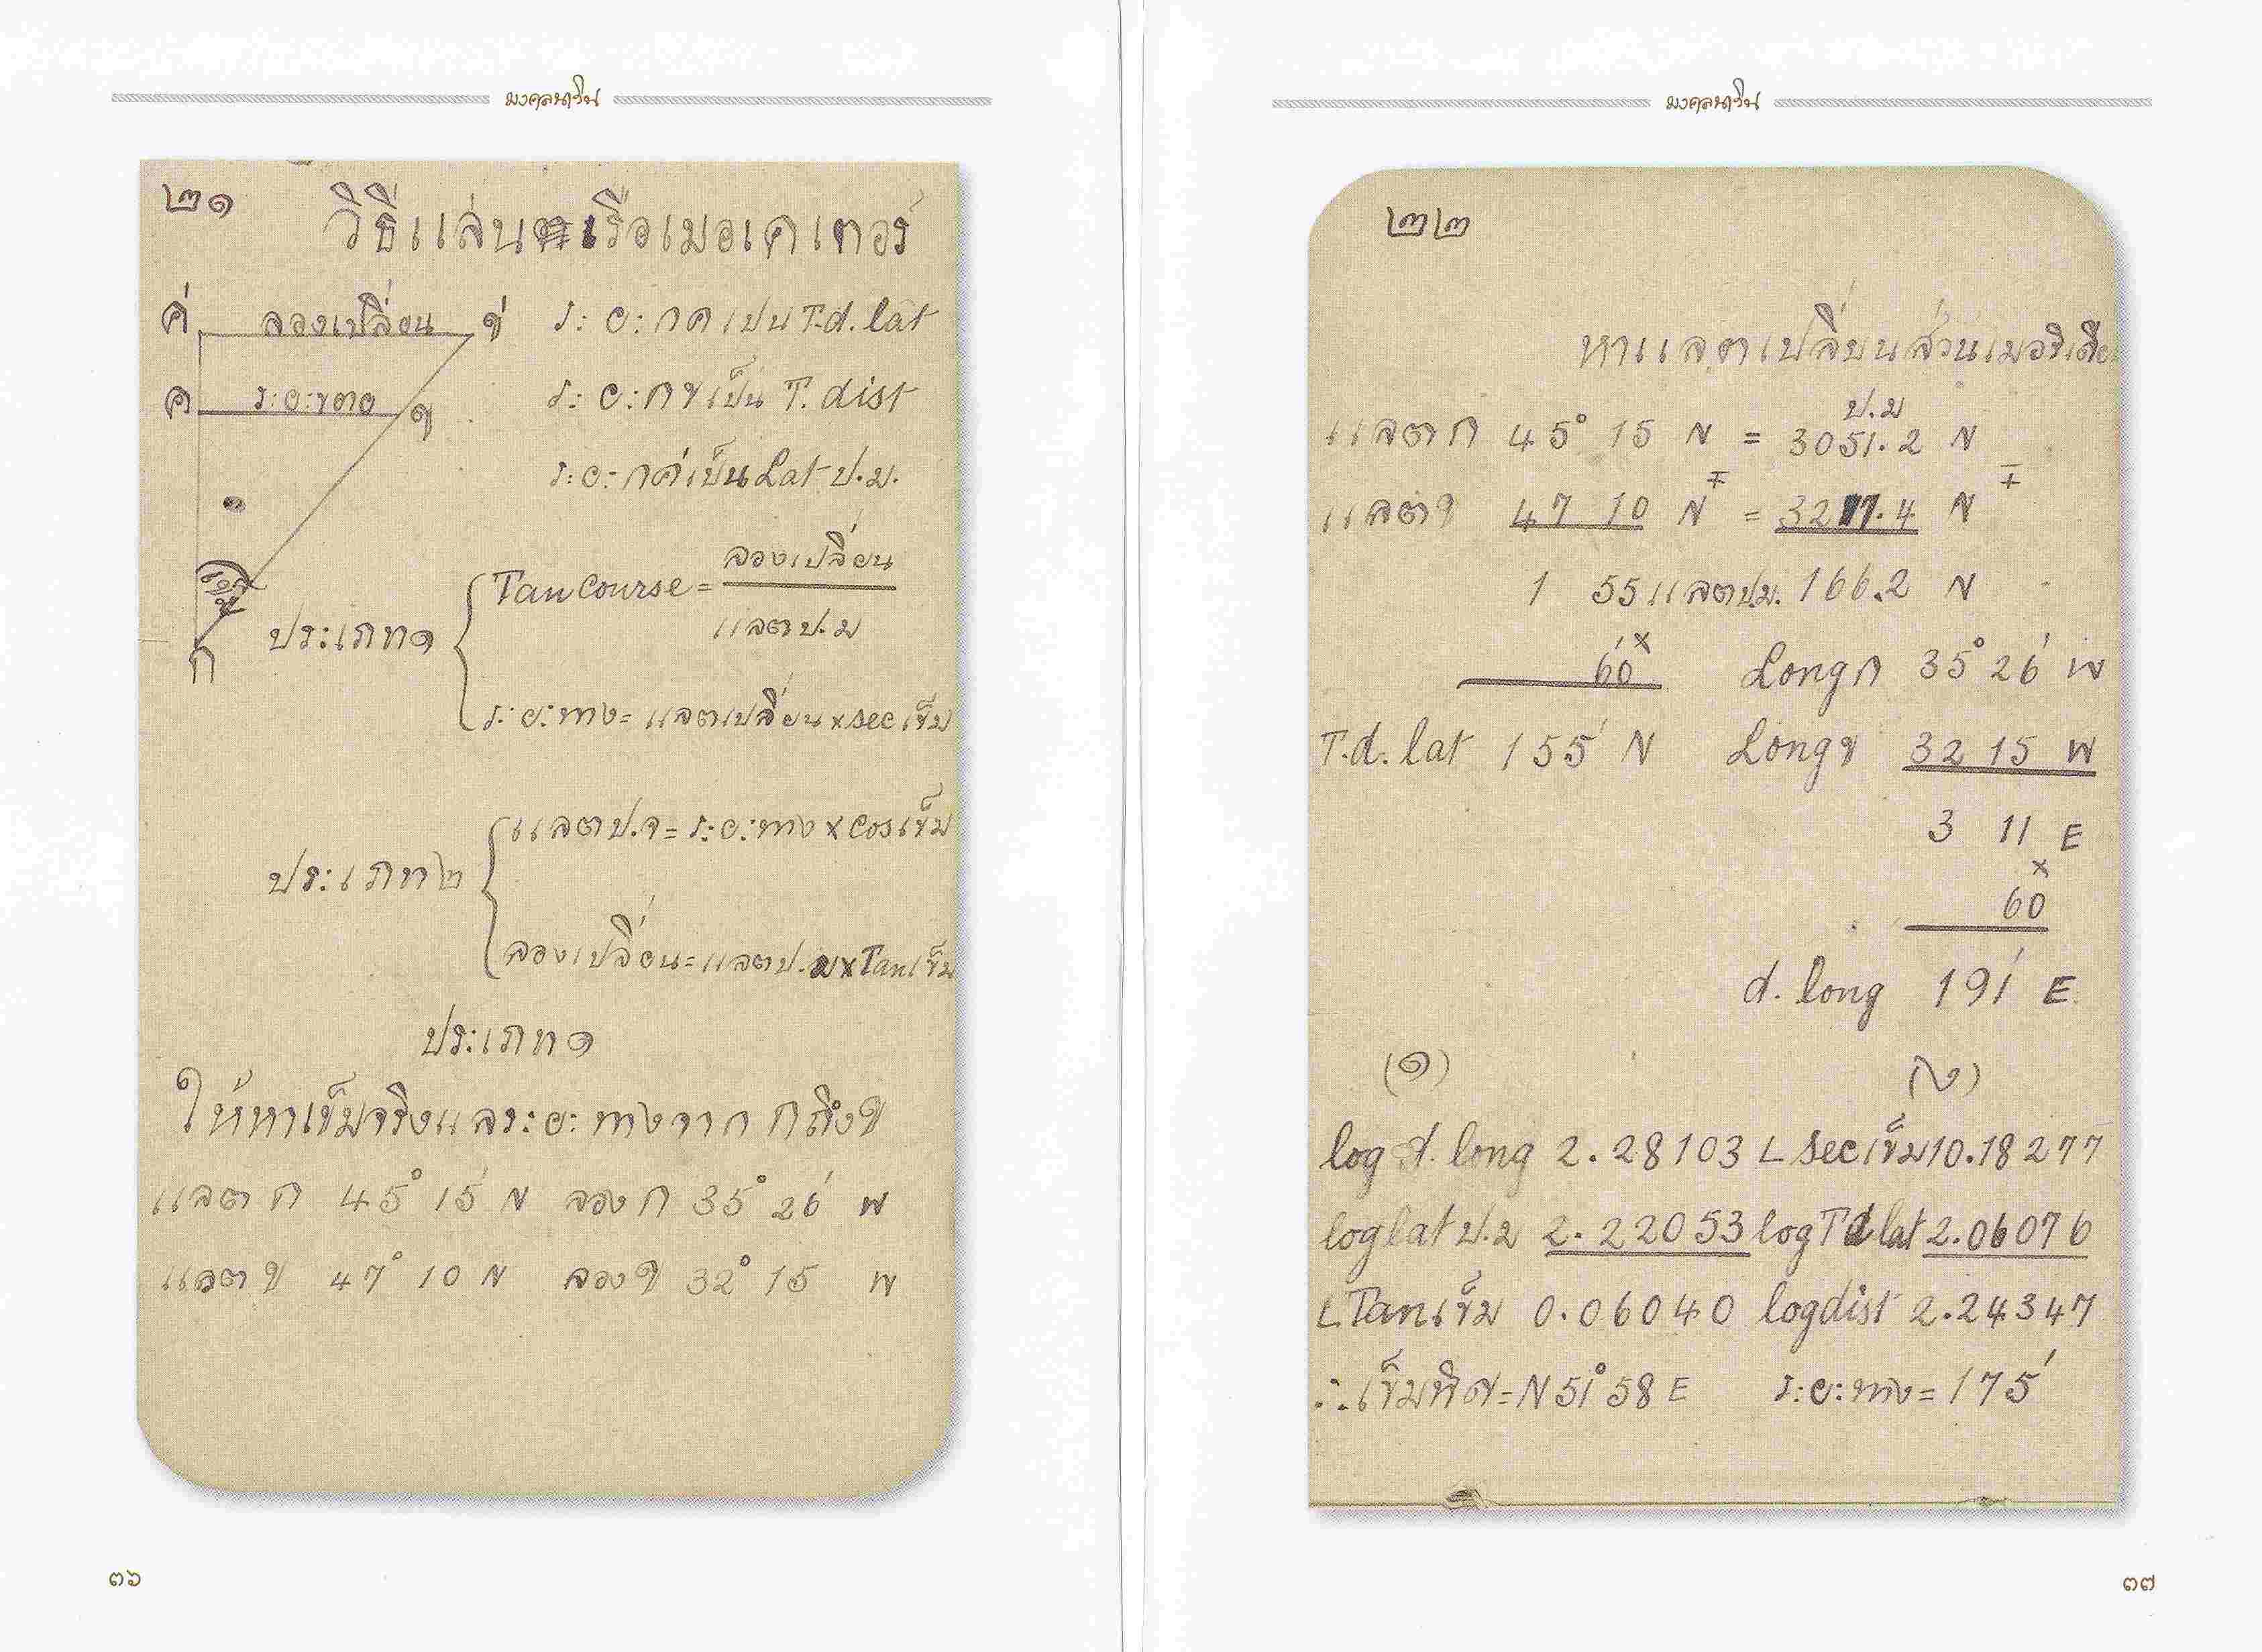 มงคลนาวิน
๒๑
วิธีแล่นเรือเมอเคเทอร์
ค่ ลองเปลี่ยน ข่ ระยะกคเปน T.d. lat
ค ระยะขตอ ข ระยะกขเป็น T. dist
ระยะกค่เป็น Lat ป.ม.
ก
ประเภท๑
Tan Course = ลองเปลี่ยน
แลตป.ม
ระยะทาง = แลตเปลี่ยน x sec เข็ม
ประเภท๒
แลตป.จ = ระยะทาง x cos เข็ม
ลองเปลี่ยน = แลตป.ม x Tan เข็ม
ประเภท๑
ให้หาเข็มจริงแลระยะทางจาก ก ถึง ข
แลต ก 45° 15' N ลอง ก 35° 26' W
แลต ข 47° 10 N ลอง ข 32° 15 W
๓๖
มงคลนาวิน
๒๒
หาแลตเปลี่ยนส่วนเมอริเดีย
ป.ม
แลต ก 45° 15 N = 3051.2 N
แลต ข 47 10 N ∓ = 3217.4 N ∓
1 55 แลตป.ม. 166.2 N
60 x Long ก 35° 26' W
T.d. lat 155' N Long ข 32 15 W
3 11 E
x
60
d. long 191' E
(๑) (๒)
log d. long 2.28103 L sec เข็ม 10.18277
log lat ป.ม 2.22053 log Td lat 2.06076
L Tan เข็ม 0.06040 log dist 2.24347
∴ เข็มทิศ = N 51° 58 E ระยะทาง = 175'
๓๗